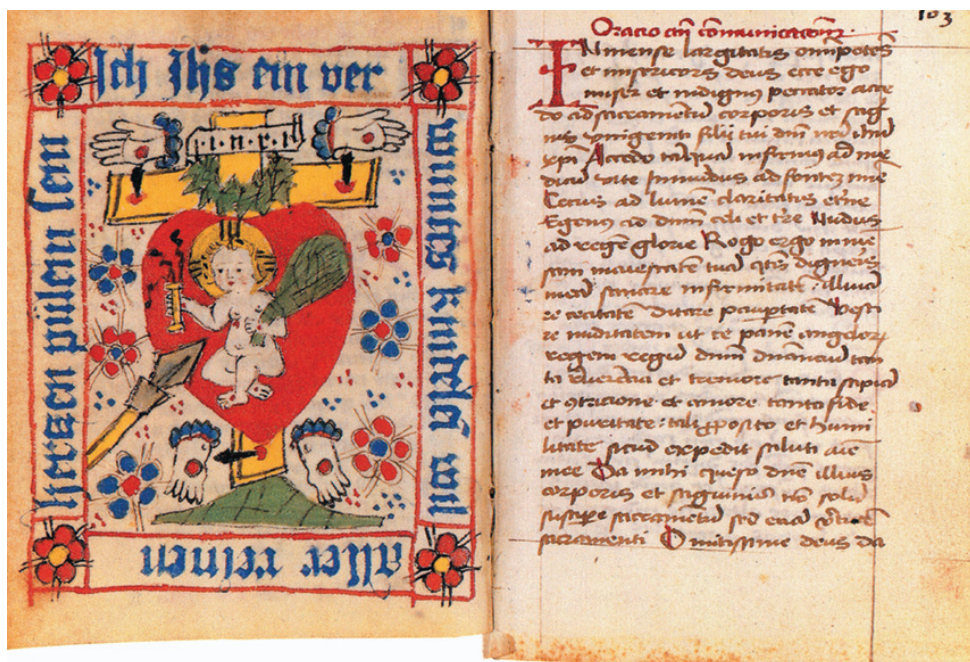 Ich Ihs ein ver
wunntes kindela wil
aller reinen
herczen pülein sein
·i·n·r·i·
103
Oracio an̄ cōmunicacōeȝ
INmense largitatis omīpotēs
et misericors deus ecce ego
miser et indignus peccator acce
do ad sacramentū corporis et sāg
nis vnigeniti filij tui dnī nrī ihū
xpī Accedo tāquā infirmꝰ ad me
dicū vite Inmūdus ad fonteȝ mīe
Cecus ad lumē claritatis etne
Egenus ad dnm̄ celi et tr̄e Nudus
ad regē glorie Rogo ergo inme
sam maiestatē tuā qtīs digneris
meā sanare infirmitatē illumīa
re cecitatē ditare paupertatē vesti
re nuditatem ut te panē angeloꝝ
regem regū dnm̄ dnanciū tan
ta reuerencia et tremore tanta
et ꝯtricione et amore tanta fide
et puritate tali ꝓposito et humi
litate sicud expedit saluti aīe
mee Da mihi queso dnē illius
corporis et sāgwīis nō solū
suscipe sacramētū sed eciā v̄tutē
sacramenti O mitissime deus da